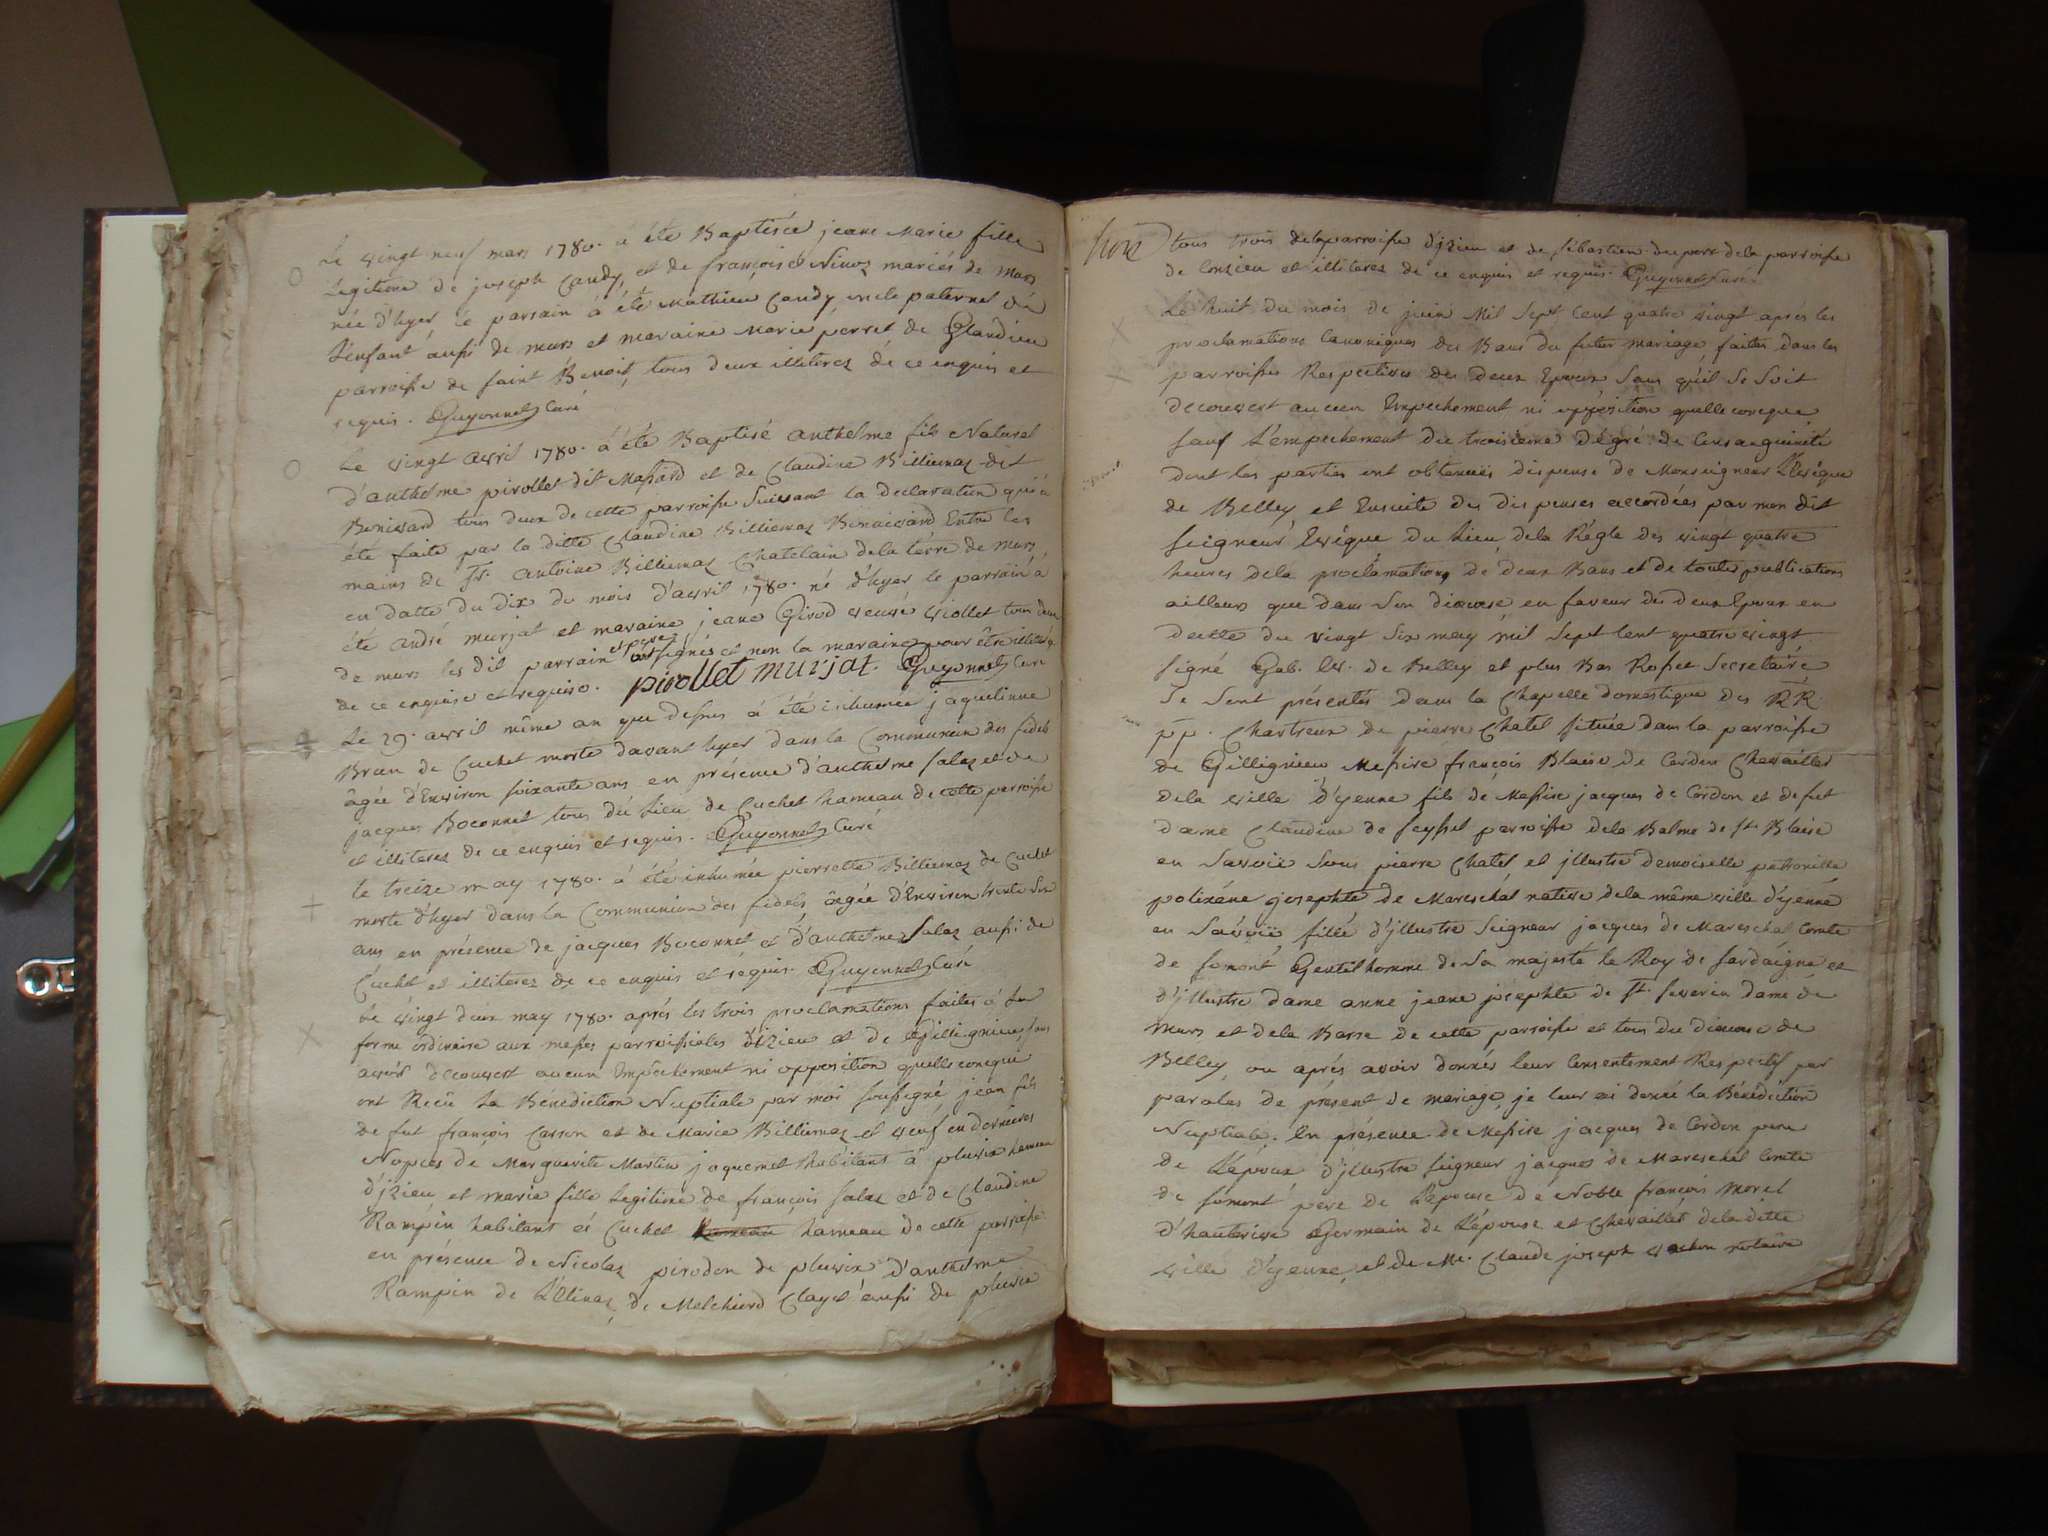 Le vingt neuf mars 1780. a été Baptisée jeane Marie fille
Legitime de joseph Candy, et de françoise Ninoz mariés de Murs
née d'hyer, le parrain à été Mathieu Candy oncle paternel de
L'enfant aussi de murs et maraine Marie perret de Glandieu
parroisse de saint Benoit, tous deux illiterez de ce enquis et
requis. Guyonnet Curé
Le vingt avril 1780. a été Baptisé anthelme fils Naturel
d'anthelme pirollet dit Massard et de Claudine Billiemaz dit
Benissard tous deux de cette parroisse suivant la declaration qui a
été faite par la ditte Claudine Billiemaz Entre les
mains de Sr. antoine Billiemaz Chatelain dela terre de Murs
en datte du dix du mois d'avril 1780. né d'hyer le parrain à
été andré murjat et maraine jeane Girod veuve viollet tous deux
de murs les dit parrain et pere ont signés et non la maraine pour être illiterée
de ce enquise et requise. pirollet murjat. Guyonnet Curé
Le 29. avril même an que dessus à été inhumée jaquelinne
Brun de Cuchet morte davant hyer dans la Communion des fidels
âgée d'Environ soixante ans en présence d'anthelme salaz et de
jacques Boconnet tous du Lieu de Cuchet hameau de cette parroisse
et illiterez de ce enquis et requis. Guyonnet Curé
le treize may 1780. à été inhumée pierrette Billiemaz de Cuchet
morte d'hyer dans la Communion des fidels âgée d'Environ trente six
ans en présence de jacques Boconnet et d'anthelme Salaz aussi de
Cuchet et illiterez de ce enquis et réquis. Guyonnet Curé
Le vingt deux may 1780. après les trois proclamations faites à la
forme ordinaire aux messes parroissiales d'izieu et de Gillignieu sans
avoir decouvert aucun Empêchement ni opposition quelleconque
ont Recüe La Benediction Nuptiale par moi soussigné, jean fils
de fut françois Carron et de Marie Billiemaz et veuf en dernieres
Nopces de Marguerite Martin jaquemet habitant à pluvix hameau
d'izieu, et marie fille Legitime de françois salaz et de Claudine
Rampin habitant à Cuchet hameau hameau de cette parroisse
en présence de Nicolaz pirodon de pluvix d'anthelme
Rampin de de Melchiord Clayet aussi de pluvix
trois
tous trois dela parroisse d'izieu et de sébastien dela parroisse
de Conzieu et illiterez de ce enquis et requis. Guyonnet Curé
Le huit du mois de juin Mil Sept Cent quatre vingt après les
proclamations Canoniques des Bans du futur mariage faites dans les
parroisses Respectives des deux Epoux Sans qu'il se soit
decouvert aucun Empechement ni opposition quelleconque
sauf L'empechement du troisieme dégré de Consanguinité
dont les parties ont obtenues dispense de Monseigneur L'Evêque
de Belley, et Ensuite des dispenses accordées par mon dit
seigneur Evêque du Lieu, dela Régle des vingt quatre
heures dela proclamation de deux Bans et de toutes publications
ailleurs que dans Son diocese en faveur des deux Epoux en
datte du vingt Six may mil Sept Cent quatre vingt
signé Gab. Ev. de Belley et plus Bas Rosset Secretaire
Se sont présentés dans la Chapelle domestique des RR.
pp. Chartreux de pierre Chatel située dans la parroisse
de Gillignieu Messire françois Blaise de Cordon Chevallier
dela ville d'yenne fils de Messire jacques de Cordon et de fut
dame Claudine de seyssel parroisse dela Balme de St. Blaise
en Savoie Sous pierre Chatel et jllustre demoiselle petronille
polixéne josephte de Mareschal native dela même ville d'yenne
en Savoie fille d'jllustre Seigneur jacques de Mareschal Comte
de somont Gentilhomme de Sa majesté le Roy de sardaigne et
d'jllustre dame anne jeane josephte de St. severin dame de
Murs et dela Barre de cette parroisse et tous du diocese de
Belley, ou après avoir donnés leur Consentement Respectif par
paroles de présent de mariage, je leur ai donné la Bénédiction
Nuptiale. En présence de Messire jacques de Cordon pere
de L'époux d'jllustre seigneur jacques de Mareschal Comte
de somont pere de L'epouse de Noble françois Morel
d'hauterive Germain de L'épouse et Chevallier deladitte
ville d'yenne, et de Me. Claude joseph vachon notaire